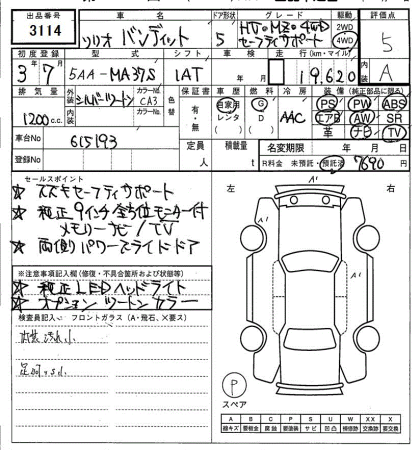 出品番号 車名 ドア形状 グレード 駆動 評価点
3114 ソリオ バンディット 5 HV・MZ 4WD セーフティサポート 2WD 4WD 5
初度登録 型式 シフト 車検 走行(km・マイル) 内装
3年7月 5AA-MA37S IAT 年 月 19,620 A
排気量 外装 カラーNo 色替 車歴 燃料 冷房 装備(純正部品に限る)
1200c.c. シルバーツートン CA3 保証書 有・無 自家用 レンタ G D AAC PS PW ABS
カラーNo エアB AW SR
車台No 615193 革 ナビ TV
登録No 定員 人 積載量 t 名変期限 年 月 日
R料金 未預託・預託済 7690 円
セールスポイント
★ スズキセーフティサポート
★ 純正9インチ全方位モニター付
メモリーナビ/TV
★ 両側パワースライドドア
※注意事項記入欄(修復・不具合箇所および状態等)
★ 純正LEDヘッドライト
★ オプションツートンカラー
検査員記入 フロントガラス(A・飛石、X要ス)
内装汚れ小
左 右
A'
A'
A'
P
スペア
A B C P S U W X XX
線キズ 要板金 腐蝕 要塗装 サビ 凹凸 補修跡 交換跡 要交換